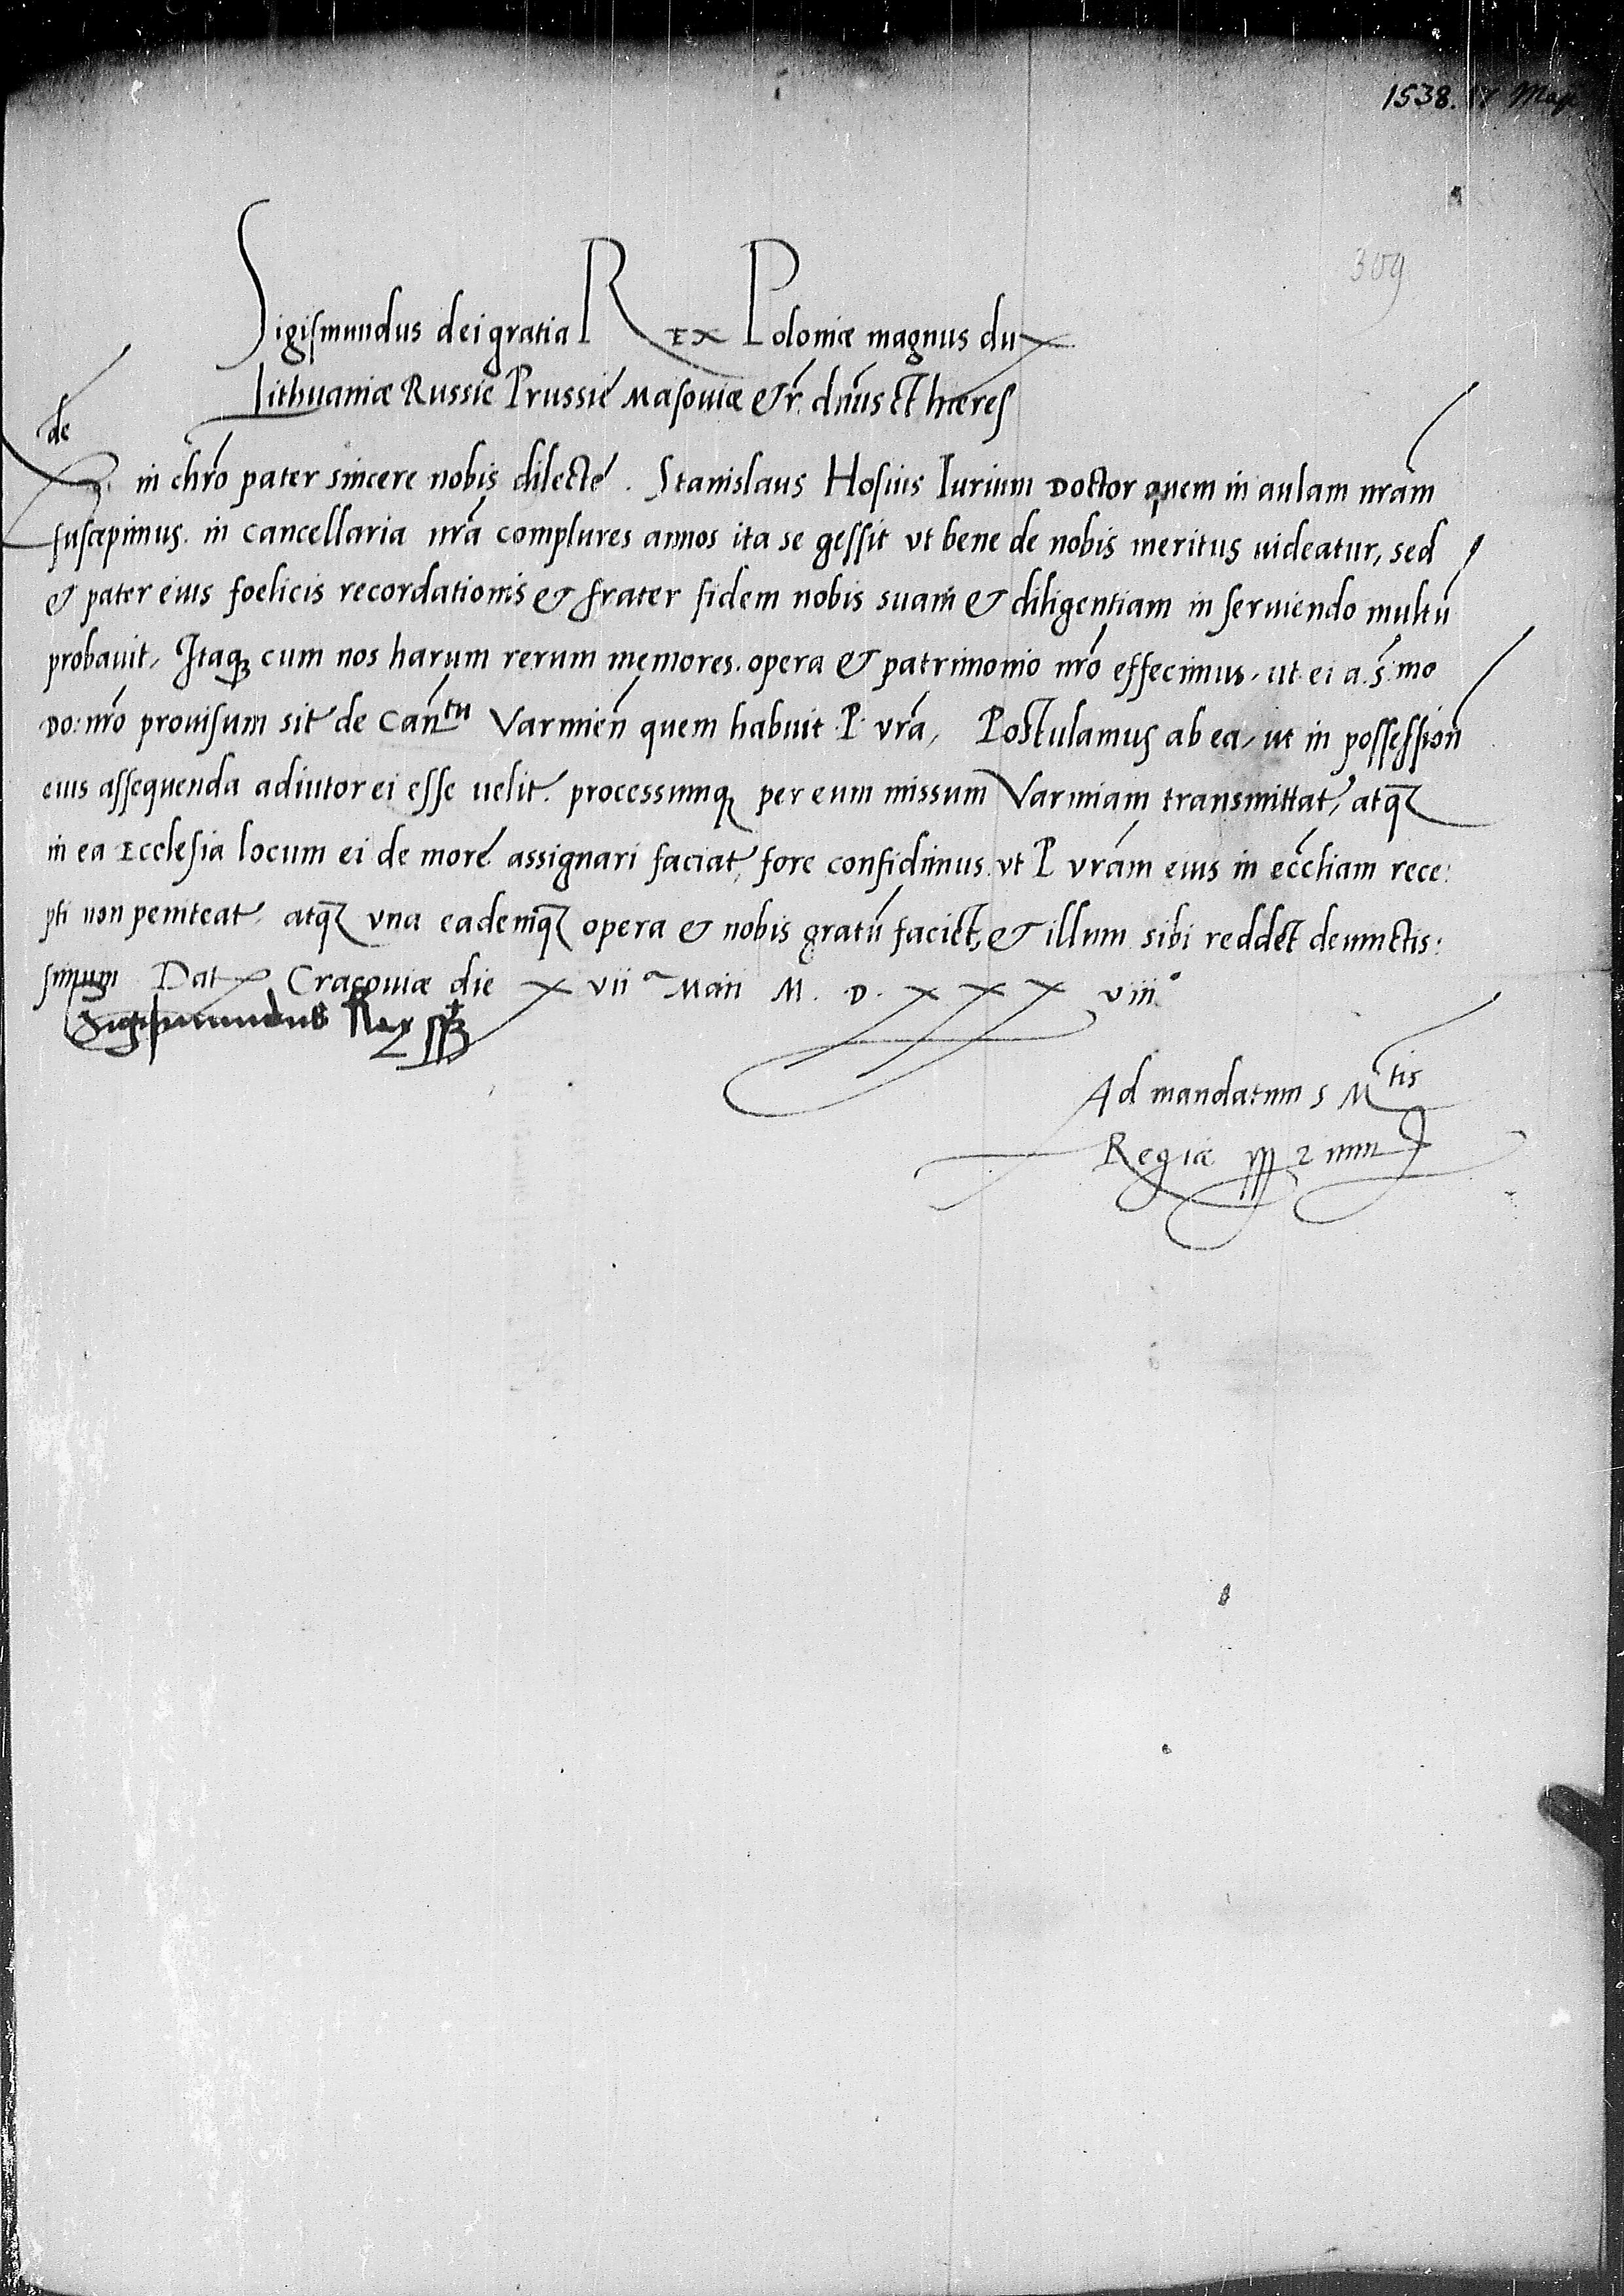 1538. 17 Maji
309
Sigismundus dei gratia Rex Poloniæ magnus dux
Lithuaniæ Russie Prussie Masouiæ &c̃. dñus et hæres
Rde in chro pater sincere nobis dilecte. Stanislaus Hosius Iurium Doctor quem in aulam nr̃am
suscepimus. in cancellaria nr̃a complures annos ita se gessit vt bene de nobis meritus uideatur, sed
& pater eius foelicis recordationis & frater fidem nobis suam & diligentiam in seruiendo multũ
probauit, Itaq; cum nos harum rerum memores. opera & patrimonio nr̃o effecimus, ut ei a. s. mo
Do: nr̃o prouisum sit de Cañtu Varmieñ quem habuit P. vr̃a, Postulamus ab ea, ut in possessioñ
eius assequenda adiutor ei esse uelit. processumq; per eum missum Varmiam transmittat, atq;
in ea Ecclesia locum ei de more assignari faciat, fore confidimus. vt P vr̃am eius in eccĺiam rece:
pti non peniteat, atq; vna eademq; opera & nobis gratũ faciet, & illum sibi reddet deuinctis:
simum Dat Cracouiæ die x vii a Maii M. D. x x x viii o
Sigismundus Rex sst
Ad mandatum S Mtis
Regiæ